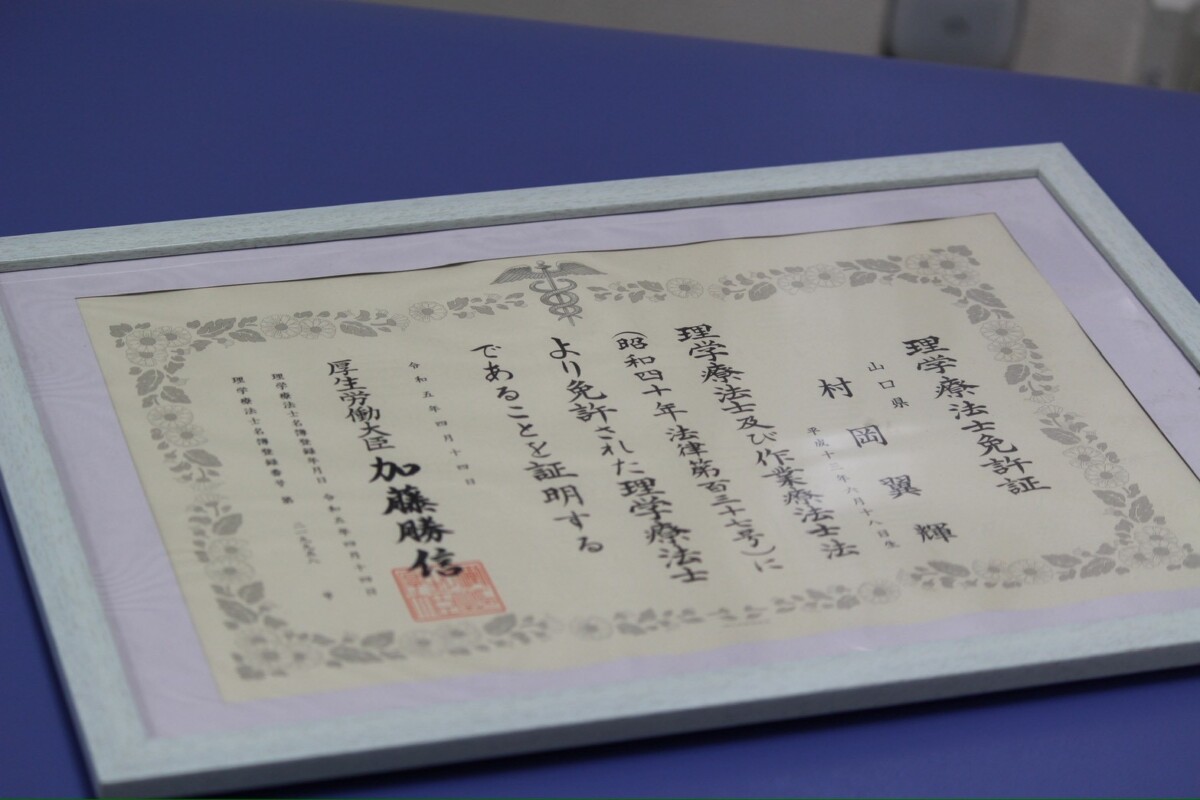 理学療法士免許証
山口県
村岡翼輝
平成十三年六月十八日生
理学療法士及び作業療法士法
(昭和四十年法律第百三十七号)に
より免許された理学療法士
であることを証明する
令和五年四月十四日
厚生労働大臣 加藤勝信
理学療法士名簿登録年月日 令和五年四月十四日
理学療法士名簿登録番号 第 号